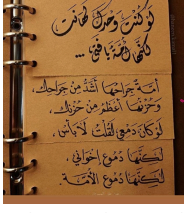 لو كنت وحدك لهانت
لكنها أمة بأفقي ...
أمة جراحها أشد من جراحك،
وحزنها أعظم من حزنك،
لو كان دمعي لقلت لا بأس،
لكنها دموع إخواني،
لكنها دموع الأمة.